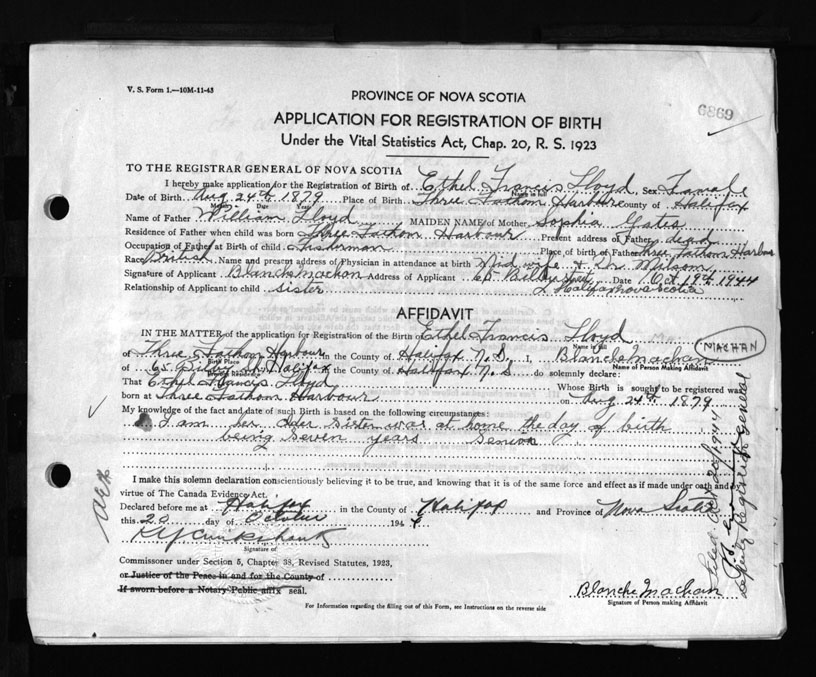 V. S. Form 1.—10M-11-43
6869
PROVINCE OF NOVA SCOTIA
APPLICATION FOR REGISTRATION OF BIRTH
Under the Vital Statistics Act, Chap. 20, R. S. 1923
TO THE REGISTRAR GENERAL OF NOVA SCOTIA
I hereby make application for the Registration of Birth of Ethel Francis Lloyd Sex Female
Name in full
Date of Birth Aug 24th 1879 Place of Birth Three Fathom Harbour County of Halifax
Month Date Year
Name of Father William Lloyd MAIDEN NAME of Mother Sophia Gates
Residence of Father when child was born Three Fathom Harbour Present address of Father dead
Occupation of Father at Birth of child Fisherman Place of birth of Father Three Fathom Harbour
Race British Name and present address of Physician in attendance at birth Mid wife & Dr
Signature of Applicant Blanche Machan Address of Applicant 65 Date Oct 19th 1944
Relationship of Applicant to child sister Halifax Nova Scotia
AFFIDAVIT
IN THE MATTER of the application for Registration of the Birth of Ethel Francis Lloyd
Name in full
of Three Fathom Harbour in the County of Halifax N.S. I, Blanche Machan (MACHAN)
Birth Place Name of Person making Affidavit
of 65 Halifax in the County of Halifax N.S do solemnly declare:
That Ethel Francis Lloyd Whose Birth is sought to be registered was
born at Three Fathom Harbour on Aug 24th 1879
My knowledge of the fact and date of such Birth is based on the following circumstances:
I am her older sister was at home the day of birth
being seven years senior
I make this solemn declaration conscientiously believing it to be true, and knowing that it is of the same force and effect as if made under oath and by
virtue of The Canada Evidence Act.
Declared before me at Halifax in the County of Halifax and Province of Nova Scotia
this 20 day of October 1944
Signature of
Commissioner under Section 5, Chapter 38, Revised Statutes, 1923,
or Justice of the Peace in and for the County of
If sworn before a Notary Public affix seal.
Blanche Machan
Signature of Person making Affidavit
For Information regarding the filling out of this Form, see Instructions on the reverse side
Filed Oct 20/1944
Deputy Registrar General